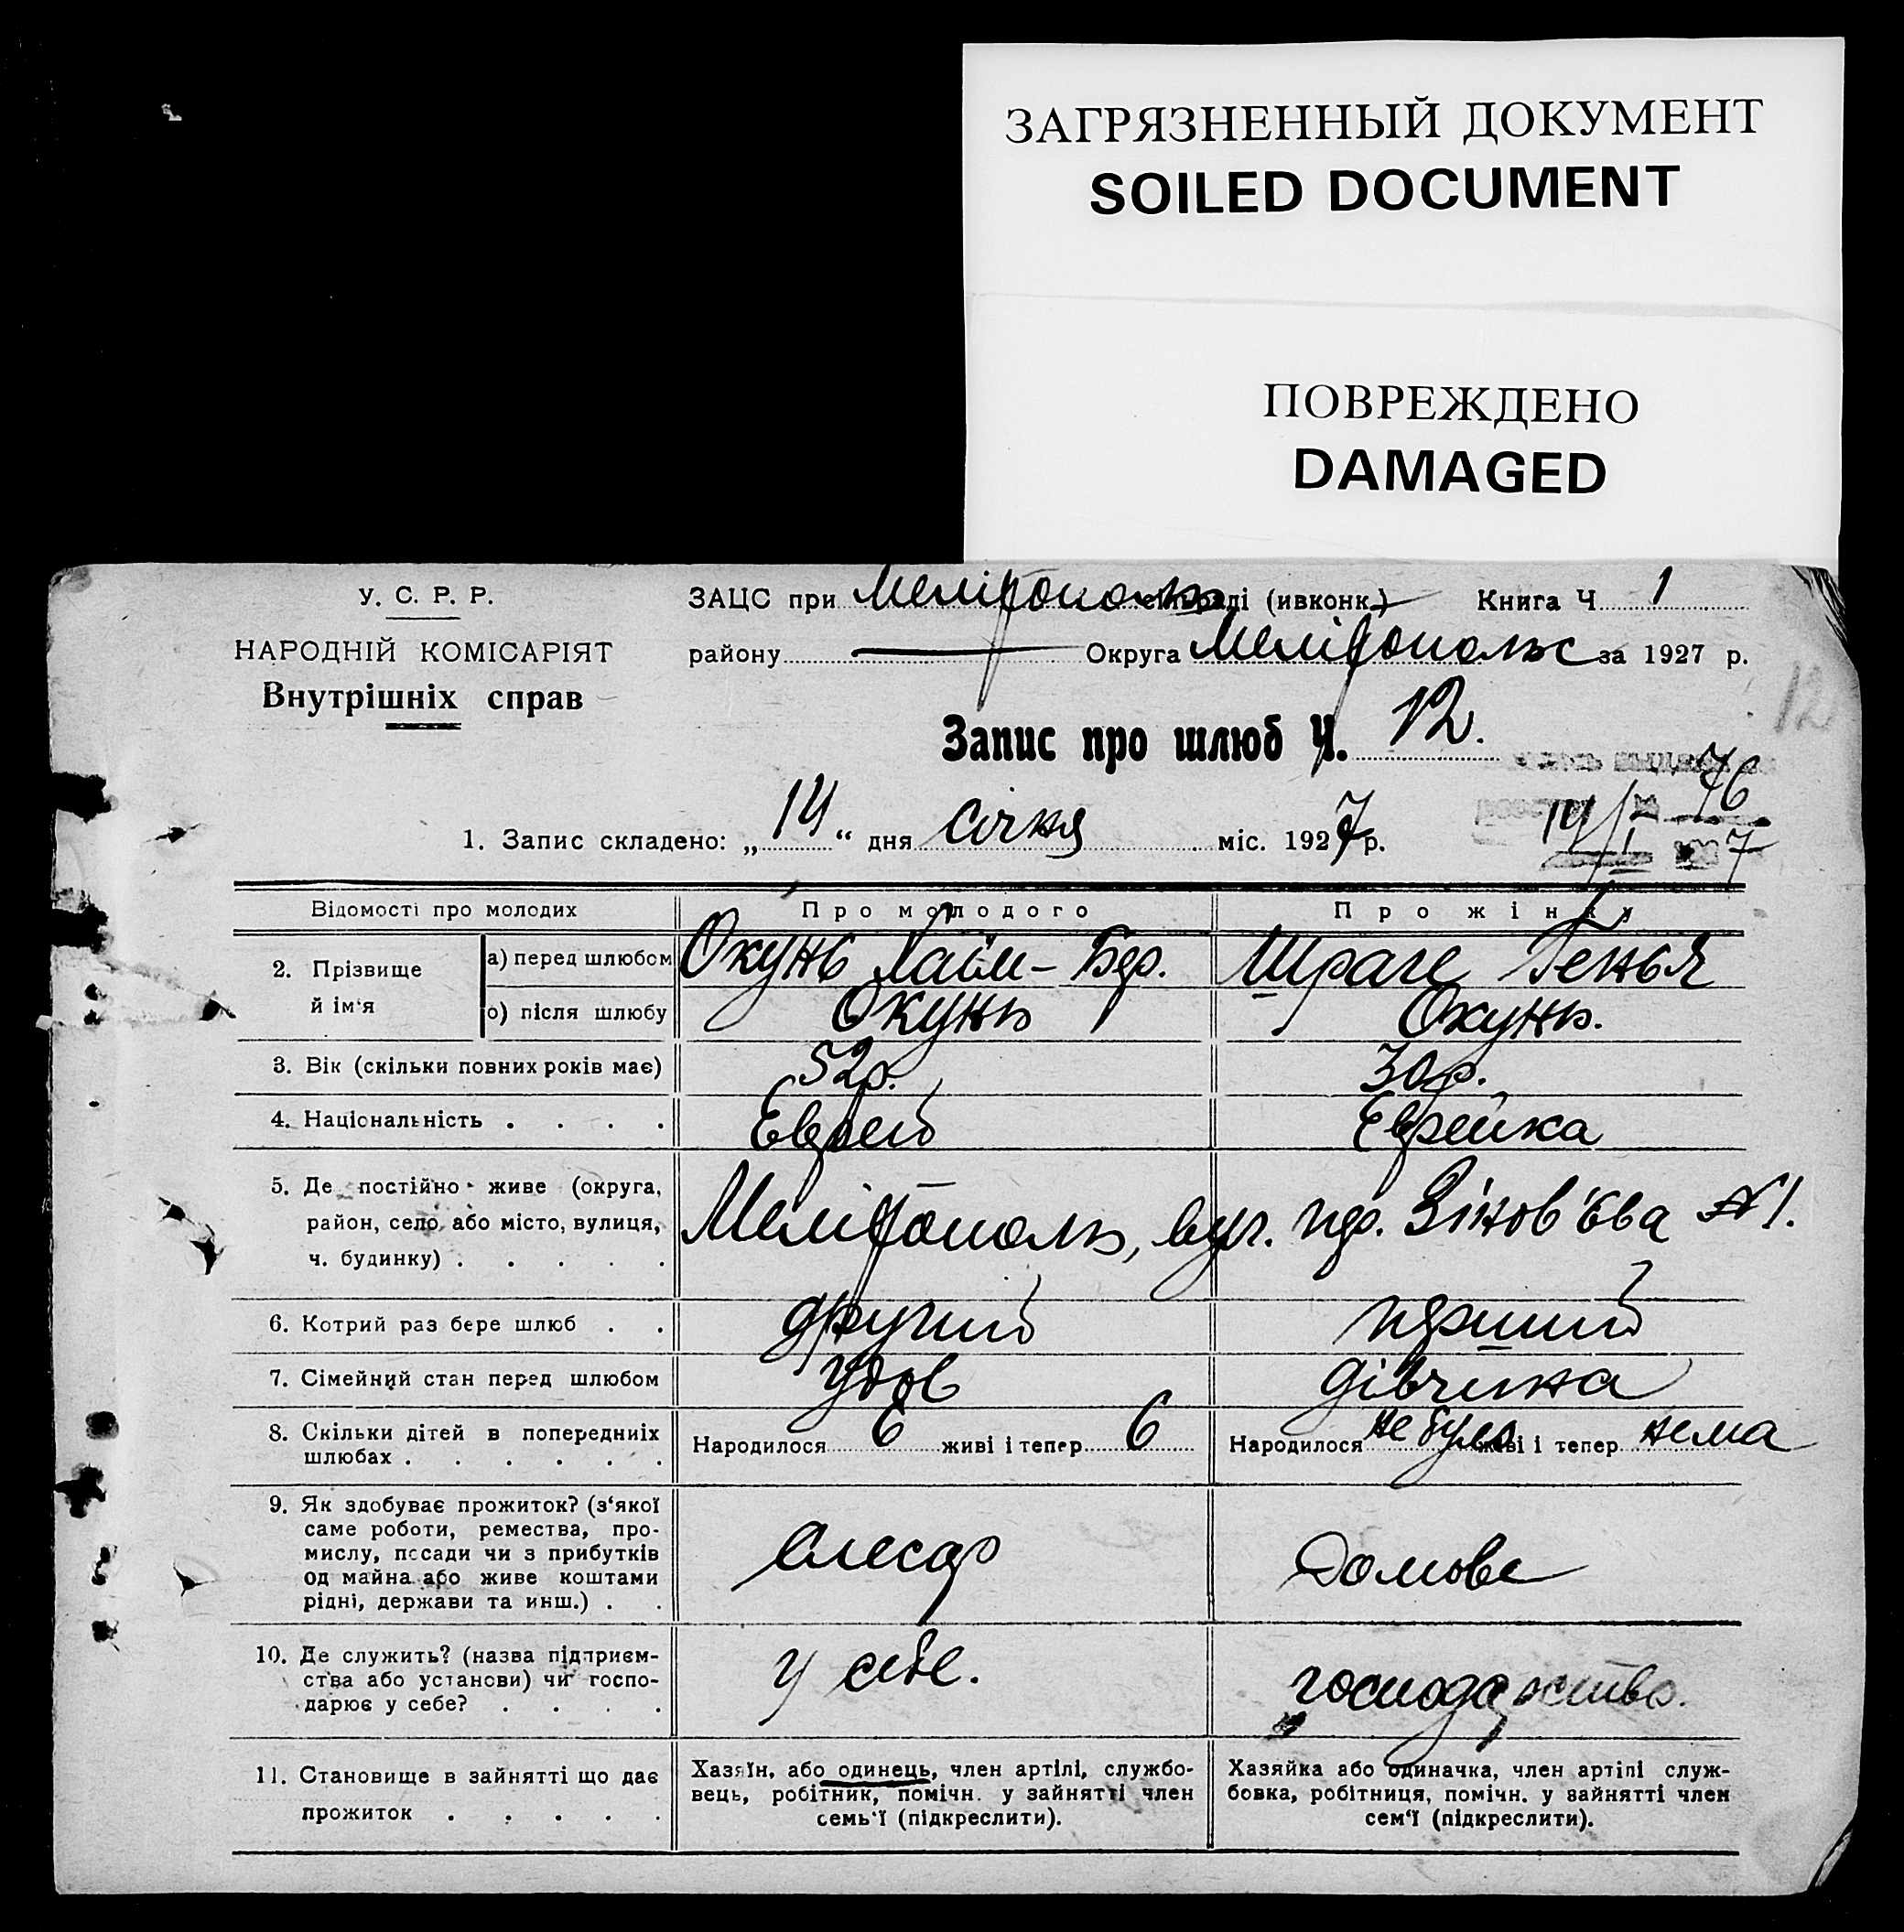 ЗАГРЯЗНЕННЫЙ ДОКУМЕНТ
SOILED DOCUMENT
ПОВРЕЖДЕНО
DAMAGED
У. С. Р. Р.
НАРОДНІЙ КОМІСАРІЯТ
Внутрішніх справ
ЗАЦС при Мелітополь сільраді (ивконк.) Книга Ч 1
району — Округа Мелітопольс за 1927 р.
12
Запис про шлюб Ч. 12.
76
1. Запис складено: „14“ дня січня міс. 1927 р.
14/I 7
Відомості про молодих Про молодого Про жінку
2. Прізвище й ім'я
а) перед шлюбом Окунь Хаїм-Бер. Шраге Генья
о) після шлюбу Окунь Окунь.
3. Вік (скільки повних років має) 52р. 30р.
4. Національність . . . . Еврей Еврейка
5. Де постійно живе (округа,
район, село або місто, вулиця,
ч. будинку) . . . . .
Мелітополь, вул. пер. Зінов'Ева №1.
6. Котрий раз бере шлюб . . другий перший
7. Сімейний стан перед шлюбом удов дівчина
8. Скільки дітей в попередніх
шлюбах . . . . . .
Народилося 6 живі і тепер 6 Народилося не було живі і тепер нема
9. Як здобуває прожиток? (з'якої
саме роботи, ремества, про-
мислу, посади чи з прибутків
од майна або живе коштами
рідні, держави та инш.) . .
Слесар Домове
10. Де служить? (назва підприєм-
ства або установи) чи госпо-
дарює у себе? . . . .
у себе. господарство.
11. Становище в зайнятті що дає
прожиток . . . . .
Хазяїн, або одинець, член артілі, службо-
вець, робітник, помічн. у зайнятті член
семь'ї (підкреслити).
Хазяйка або одиначка, член артілі служ-
бовка, робітниця, помічн. у зайнятті член
сем'ї (підкреслити).